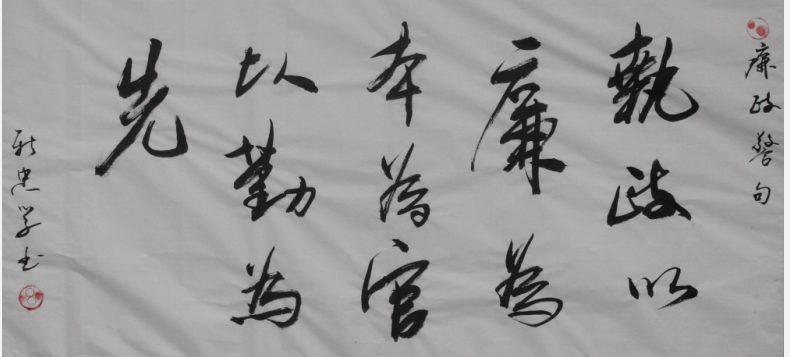 廉政警句
執政以
廉為
本為官
以勤為
先
忠学书